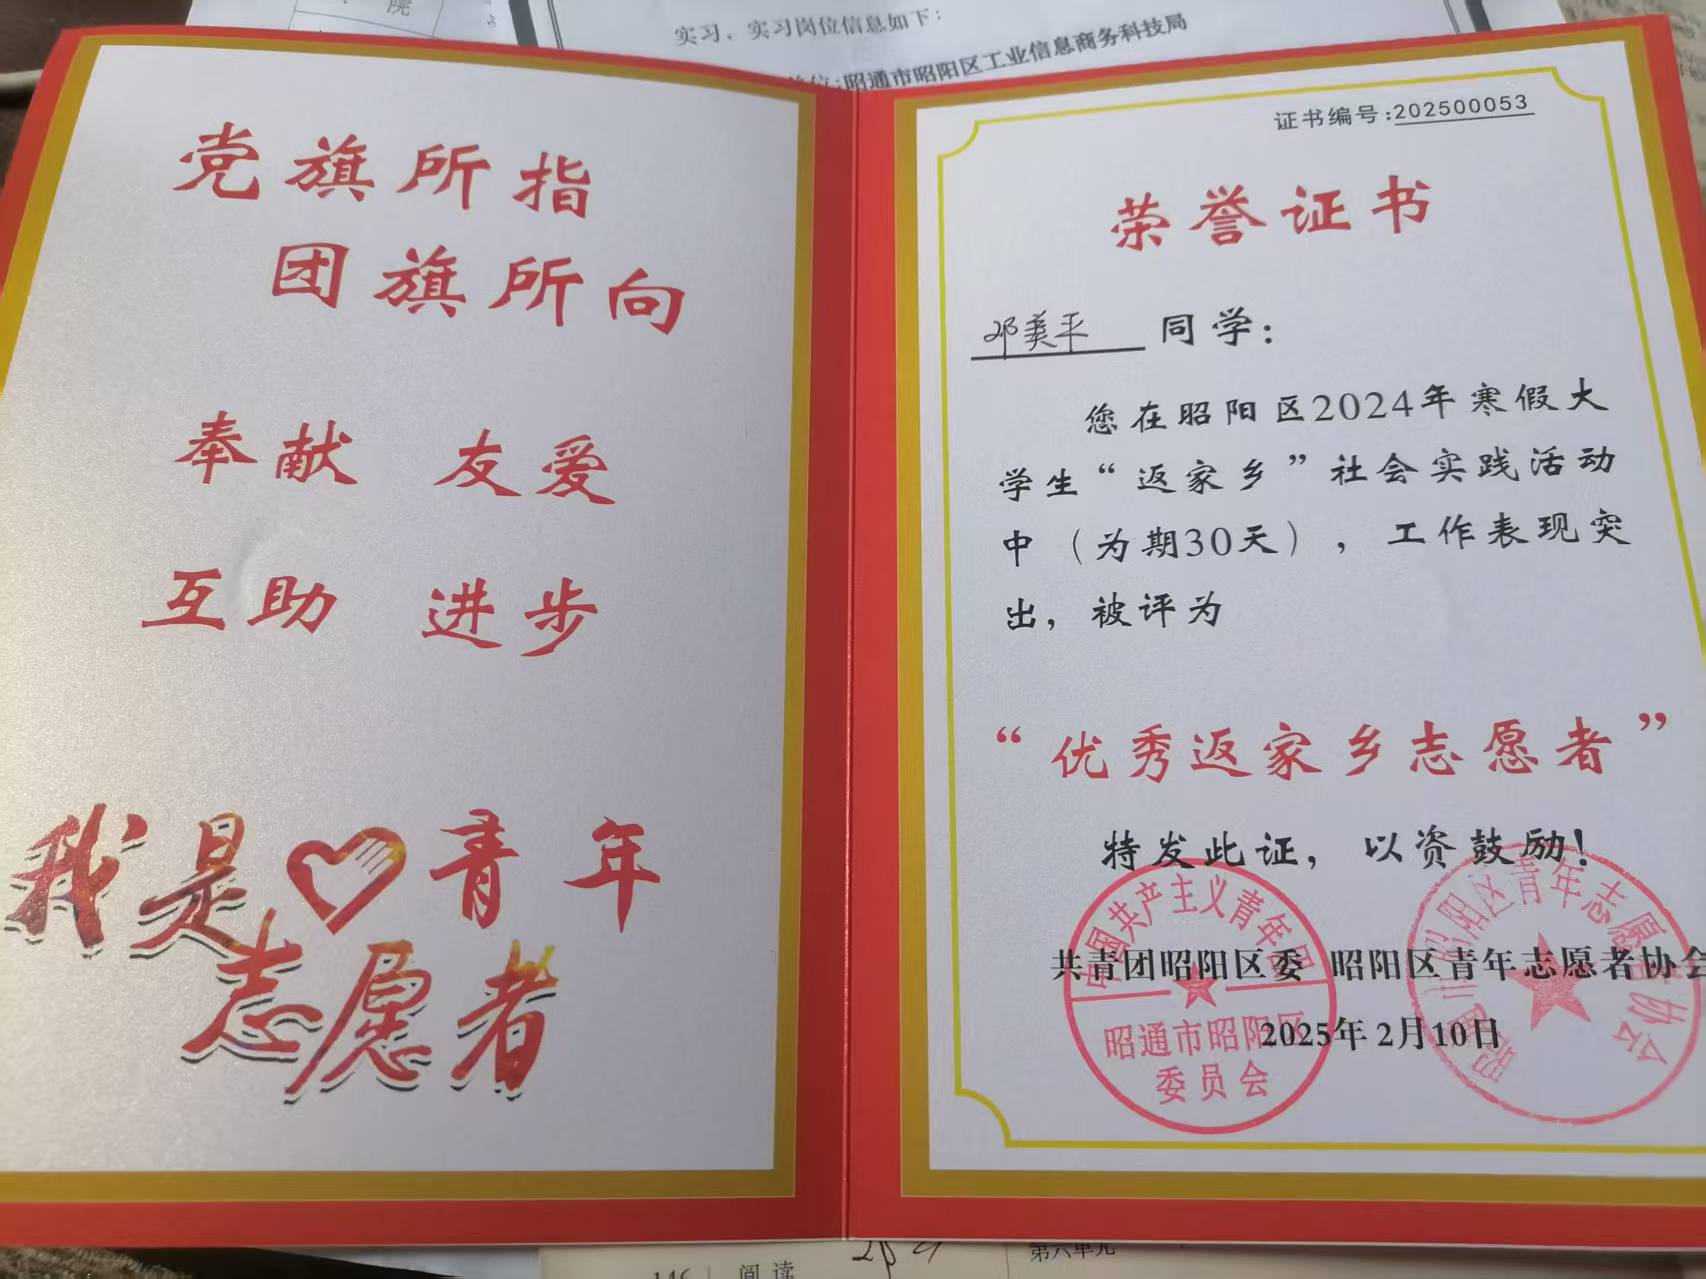 院
实习，实习岗位信息如下：
昭通市昭阳区工业信息商务科技局
党旗所指
团旗所向
奉献 友爱
互助 进步
我是青年
志愿者
证书编号:202500053
荣誉证书
邓美平 同学：
您在昭阳区2024年寒假大
学生“返家乡”社会实践活动
中（为期30天），工作表现突
出，被评为
“优秀返家乡志愿者”
特发此证，以资鼓励！
共青团昭阳区委 昭阳区青年志愿者协会
2025年2月10日
中国共产主义青年团
昭通市昭阳区
委员会
昭通市昭阳区青年志愿者协会
146 阅读
第六单元